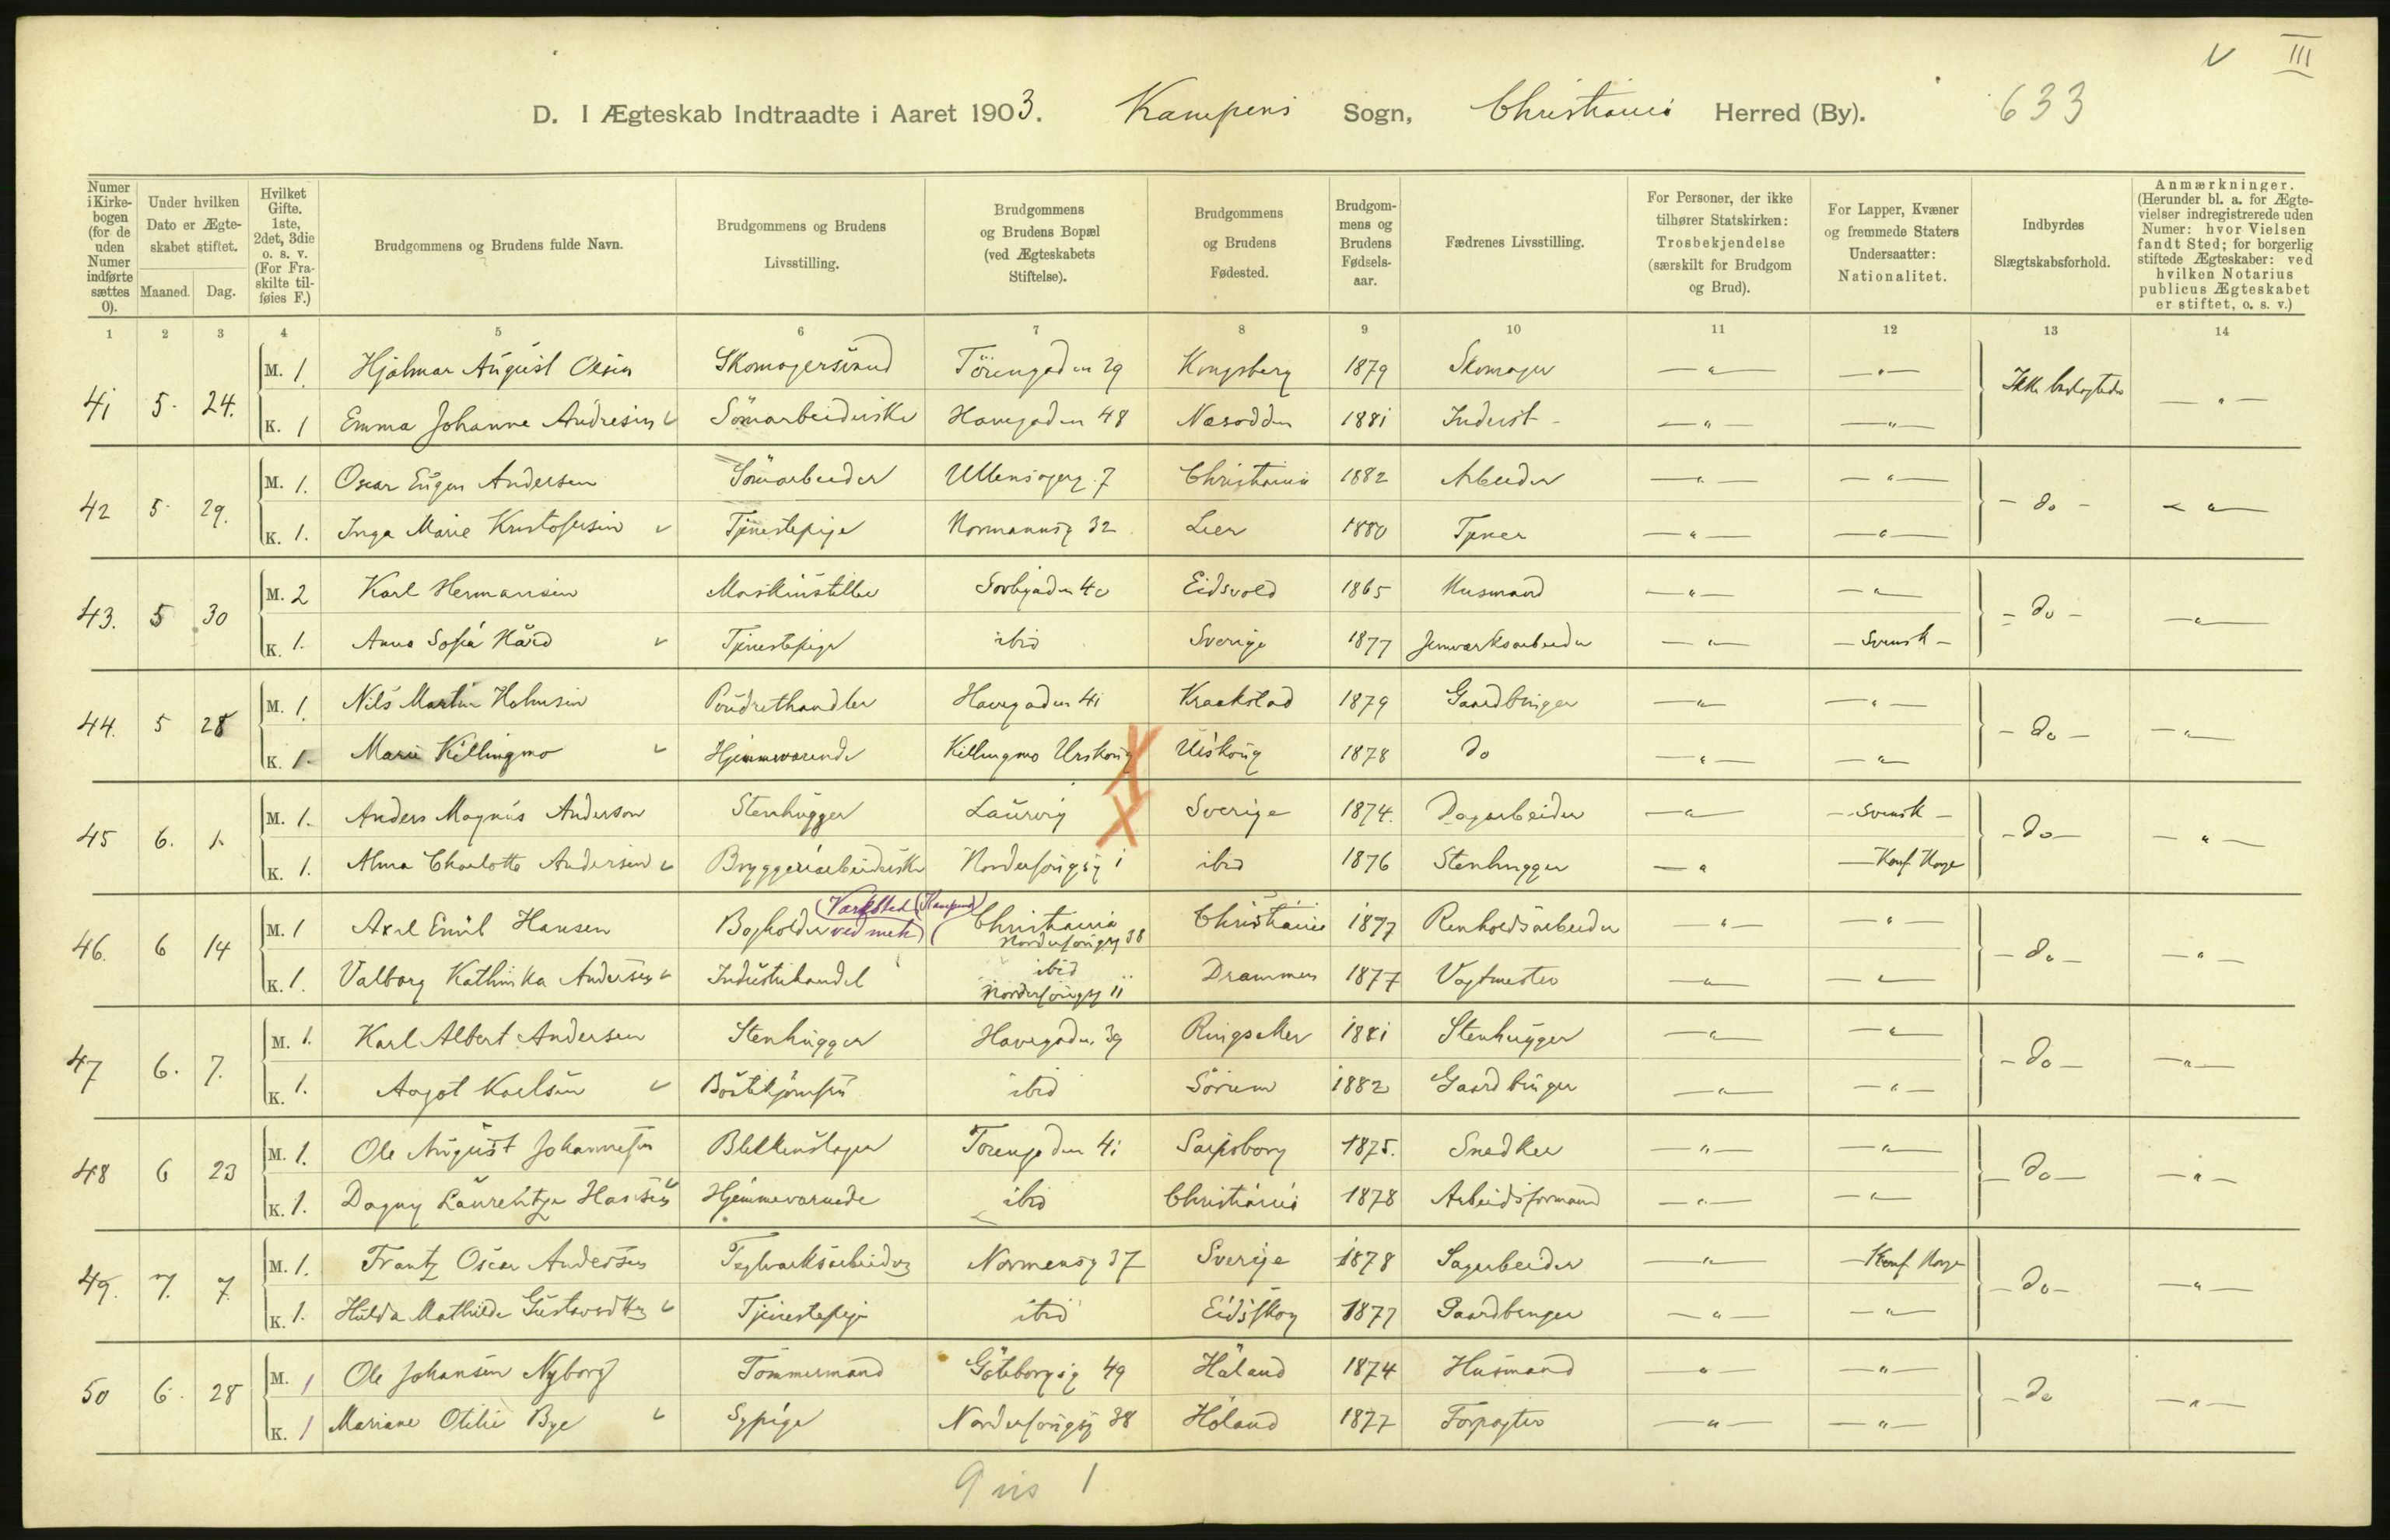 V III
D. I Ægteskab Indtraadte i Aaret 1903. Kampens Sogn, Christiania Herred (By). 633
Numer i Kirkebogen (for de uden Numer indførte sættes 0).
Under hvilken Dato er Ægteskabet stiftet.
Maaned. Dag.
Hvilket Gifte. 1ste, 2det, 3die o. s. v. (For Fraskilte tilføies F.)
Brudgommens og Brudens fulde Navn.
Brudgommens og Brudens Livsstilling.
Brudgommens og Brudens Bopæl (ved Ægteskabets Stiftelse).
Brudgommens og Brudens Fødested.
Brudgommens og Brudens Fødselsaar.
Fædrenes Livsstilling.
For Personer, der ikke tilhører Statskirken: Trosbekjendelse (særskilt for Brudgom og Brud).
For Lapper, Kvæner og fremmede Staters Undersaatter: Nationalitet.
Indbyrdes Slægtskabsforhold.
Anmærkninger. (Herunder bl. a. for Ægtevielser indregistrerede uden Numer: hvor Vielsen fandt Sted; for borgerlig stiftede Ægteskaber: ved hvilken Notarius publicus Ægteskabet er stiftet, o. s. v.)
1 2 3 4 5 6 7 8 9 10 11 12 13 14
41 5. 24. M. 1. Hjalmar August Olsen Skomagersvend Töiengaden 29 Kongsberg 1879 Skomager — " — — " — Ikke beslægtede — " —
K. 1 Emma Johanne Andresen Sömarbeiderske Havegaden 48 Næsodden 1881 Inderst — " — — " —
42 5 29. M. 1. Oscar Eugen Andersen Sömarbeider Ullensagerg. 7 Christiania 1882 Arbeider — " — — " — — do — — " —
K. 1. Inga Marie Kristofersen Tjenestepige Normannsg 32 Lier 1880 Tjener — " — — " —
43. 5 30 M. 2 Karl Hermansen Maskinstiller 4c Eidsvold 1865 Husmand — " — — " — — do — — " —
K. 1. Anna Sofia Hård Tjenestepige ibid Sverige 1877 Jernværksarbeider — " — — Svensk —
44. 5 28 M. 1. Nils Martin Holmsen Poudrethandler Havegaden 41 Kraakstad 1879 Gaardbruger — " — — " — — do — — " —
K. 1. Marie Killingmo Hjemmeværende Killingmo Urskoug Urskoug 1878 do — " — — " —
45 6. 1. M. 1. Anders Magnus Anderson Stenhugger Laurvig Sverige 1874. Dagarbeider — " — — Svensk — — do — — " —
K. 1. Alma Charlotte Andersen Bryggeriarbeiderske Nordenfongsg 1 ibid 1876 Stenhugger — " — Konf. Norge
(Værksted (Kampens)
46. 6 14 M. 1 Axel Emil Hansen Bogholder ved mek) Christiania Christiania 1877 Renholdsarbeider — " — — " — — do — — " —
38
ibid
K. 1. Valborg Kathinka Andersen Industrihandel Drammen 1877 Vagtmester — " — — " —
11
47 6. 7. M. 1. Karl Albert Andersen Stenhugger Havegaden 39 Ringsaker 1881 Stenhugger — " — — " — — do — — " —
K. 1. Aagot Karlsen ibid Sörum 1882 Gaardbruger — " — — " —
48 6 23 M. 1. Ole August Johannesen Blikkenslager Töiengaden 41 Sarpsborg 1875. Snedker — " — — " — — do — — " —
K. 1. Dagny Laurentze Hansen Hjemmeværende ibid Christiania 1878 Arbeidsformand — " — — " —
49. 7. 7. M. 1. Frantz Oscar Andersen Teglværksarbeider Normansg 37 Sverige 1878 Sagarbeider — " — Konf. Norge — do — — " —
K. 1. Hulda Mathilde Tjenestepige ibid Eidskog 1877 Gaardbruger — " — — " —
50 6. 28 M. 1 Ole Johansen Nyborg Tömmermand Göteborgsg 49 Höland 1874 Husmand — " — — " — — do — " —
K. 1 Mariane Otilie Bye Sypige 38 Höland 1877 Forpagter — " — — " —
1